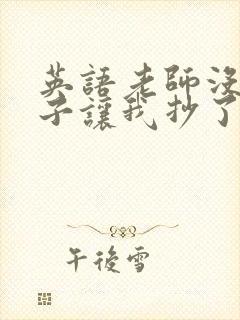 英語老師沒
子讓我抄了
午後雪